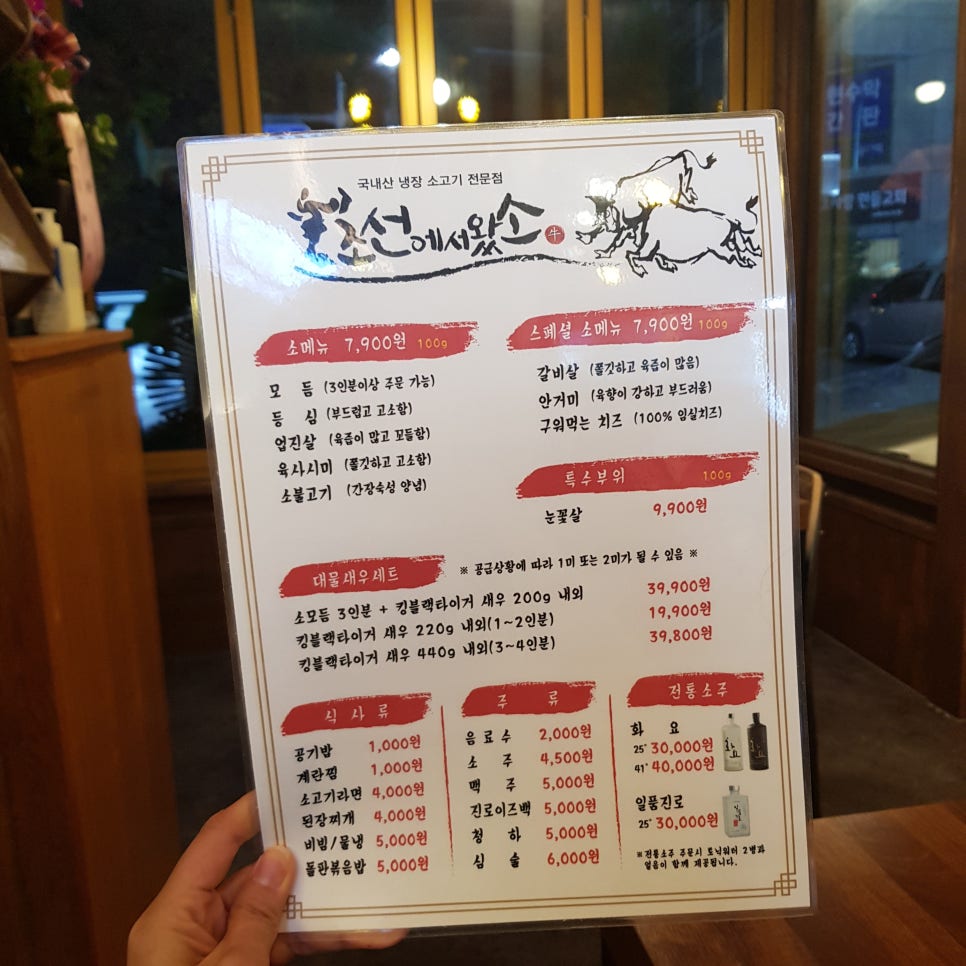 국내산 냉장 소고기 전문점
조선에서왔소 牛
소메뉴 7,900원 100g
모 듬 (3인분이상 주문 가능)
등 심 (부드럽고 고소함)
업진살 (육즙이 많고 꼬들함)
육사시미 (쫄깃하고 고소함)
소불고기 (간장숙성 양념)
스페셜 소메뉴 7,900원 100g
갈비살 (쫄깃하고 육즙이 많음)
안거미 (육향이 강하고 부드러움)
구워먹는 치즈 (100% 임실치즈)
특수부위 100g
눈꽃살 9,900원
대물새우세트 ※ 공급상황에 따라 1미 또는 2미가 될 수 있음 ※
소모듬 3인분 + 킹블랙타이거 새우 200g 내외 39,900원
킹블랙타이거 새우 220g 내외(1~2인분) 19,900원
킹블랙타이거 새우 440g 내외(3~4인분) 39,800원
식 사 류
공기밥 1,000원
계란찜 1,000원
소고기라면 4,000원
된장찌개 4,000원
비빔/물냉 5,000원
돌판볶음밥 5,000원
주 류
음 료 수 2,000원
소 주 4,500원
맥 주 5,000원
진로이즈백 5,000원
청 하 5,000원
심 술 6,000원
전통소주
화 요
25° 30,000원
41° 40,000원
화요
일품진로
25° 30,000원
※전통소주 주문시 토닉워터 2병과
얼음이 함께 제공됩니다.
현수막
간 판
한들교회